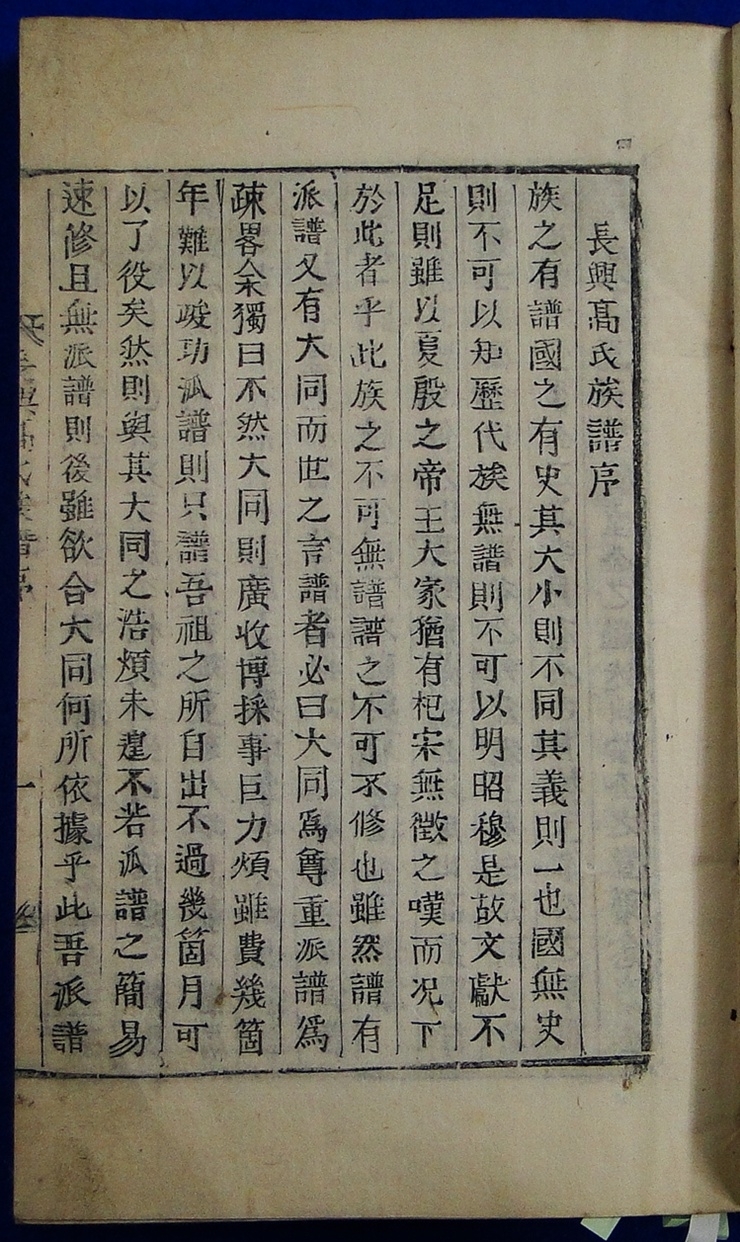 長興髙氏族譜序
族之有譜國之有史其大小則不同其義則一也國無史
則不可以知歷代族無譜則不可以明昭穆是故文獻不
足則雖以夏殷之帝王大家猶有杞宋無徵之嘆而况下
於此者乎此族之不可無譜譜之不可不修也雖然譜有
派譜又有大同而世之言譜者必曰大同爲尊重派譜爲
疎畧余獨曰不然大同則廣收博採事巨力煩雖費幾箇
年難以竣功派譜則只譜吾祖之所自出不過幾箇月可
以了役矣然則與其大同之浩煩未遑不若派譜之簡易
速修且無派譜則後雖欲合大同何所依據乎此吾派譜
長興高氏族譜序 一